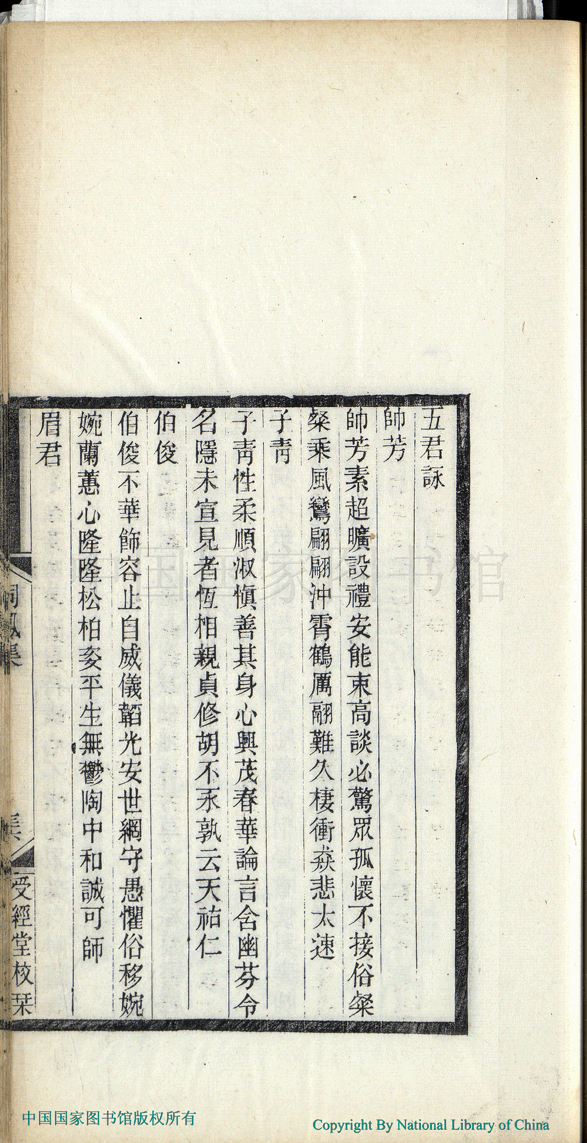 五君詠
帥芳
帥芳素超曠設禮安能束高談必驚眾孤懷不接俗粲
粲乘風鸞翩翩沖霄鶴厲翮難久棲衝猋悲太速
子靑
子靑性柔順淑愼善其身心與茂春華論言含幽芬令
名隱未宣見者恆相親貞修胡不永孰云天祐仁
伯俊
伯俊不華飾容止自威儀韜光安世網守愚懼俗移婉
婉蘭蕙心隆隆松柏姿平生無鬱陶中和誠可師
眉君
集
集
受經堂校栞
国家图书馆
中国国家图书馆版权所有
Copyright By National Library of China